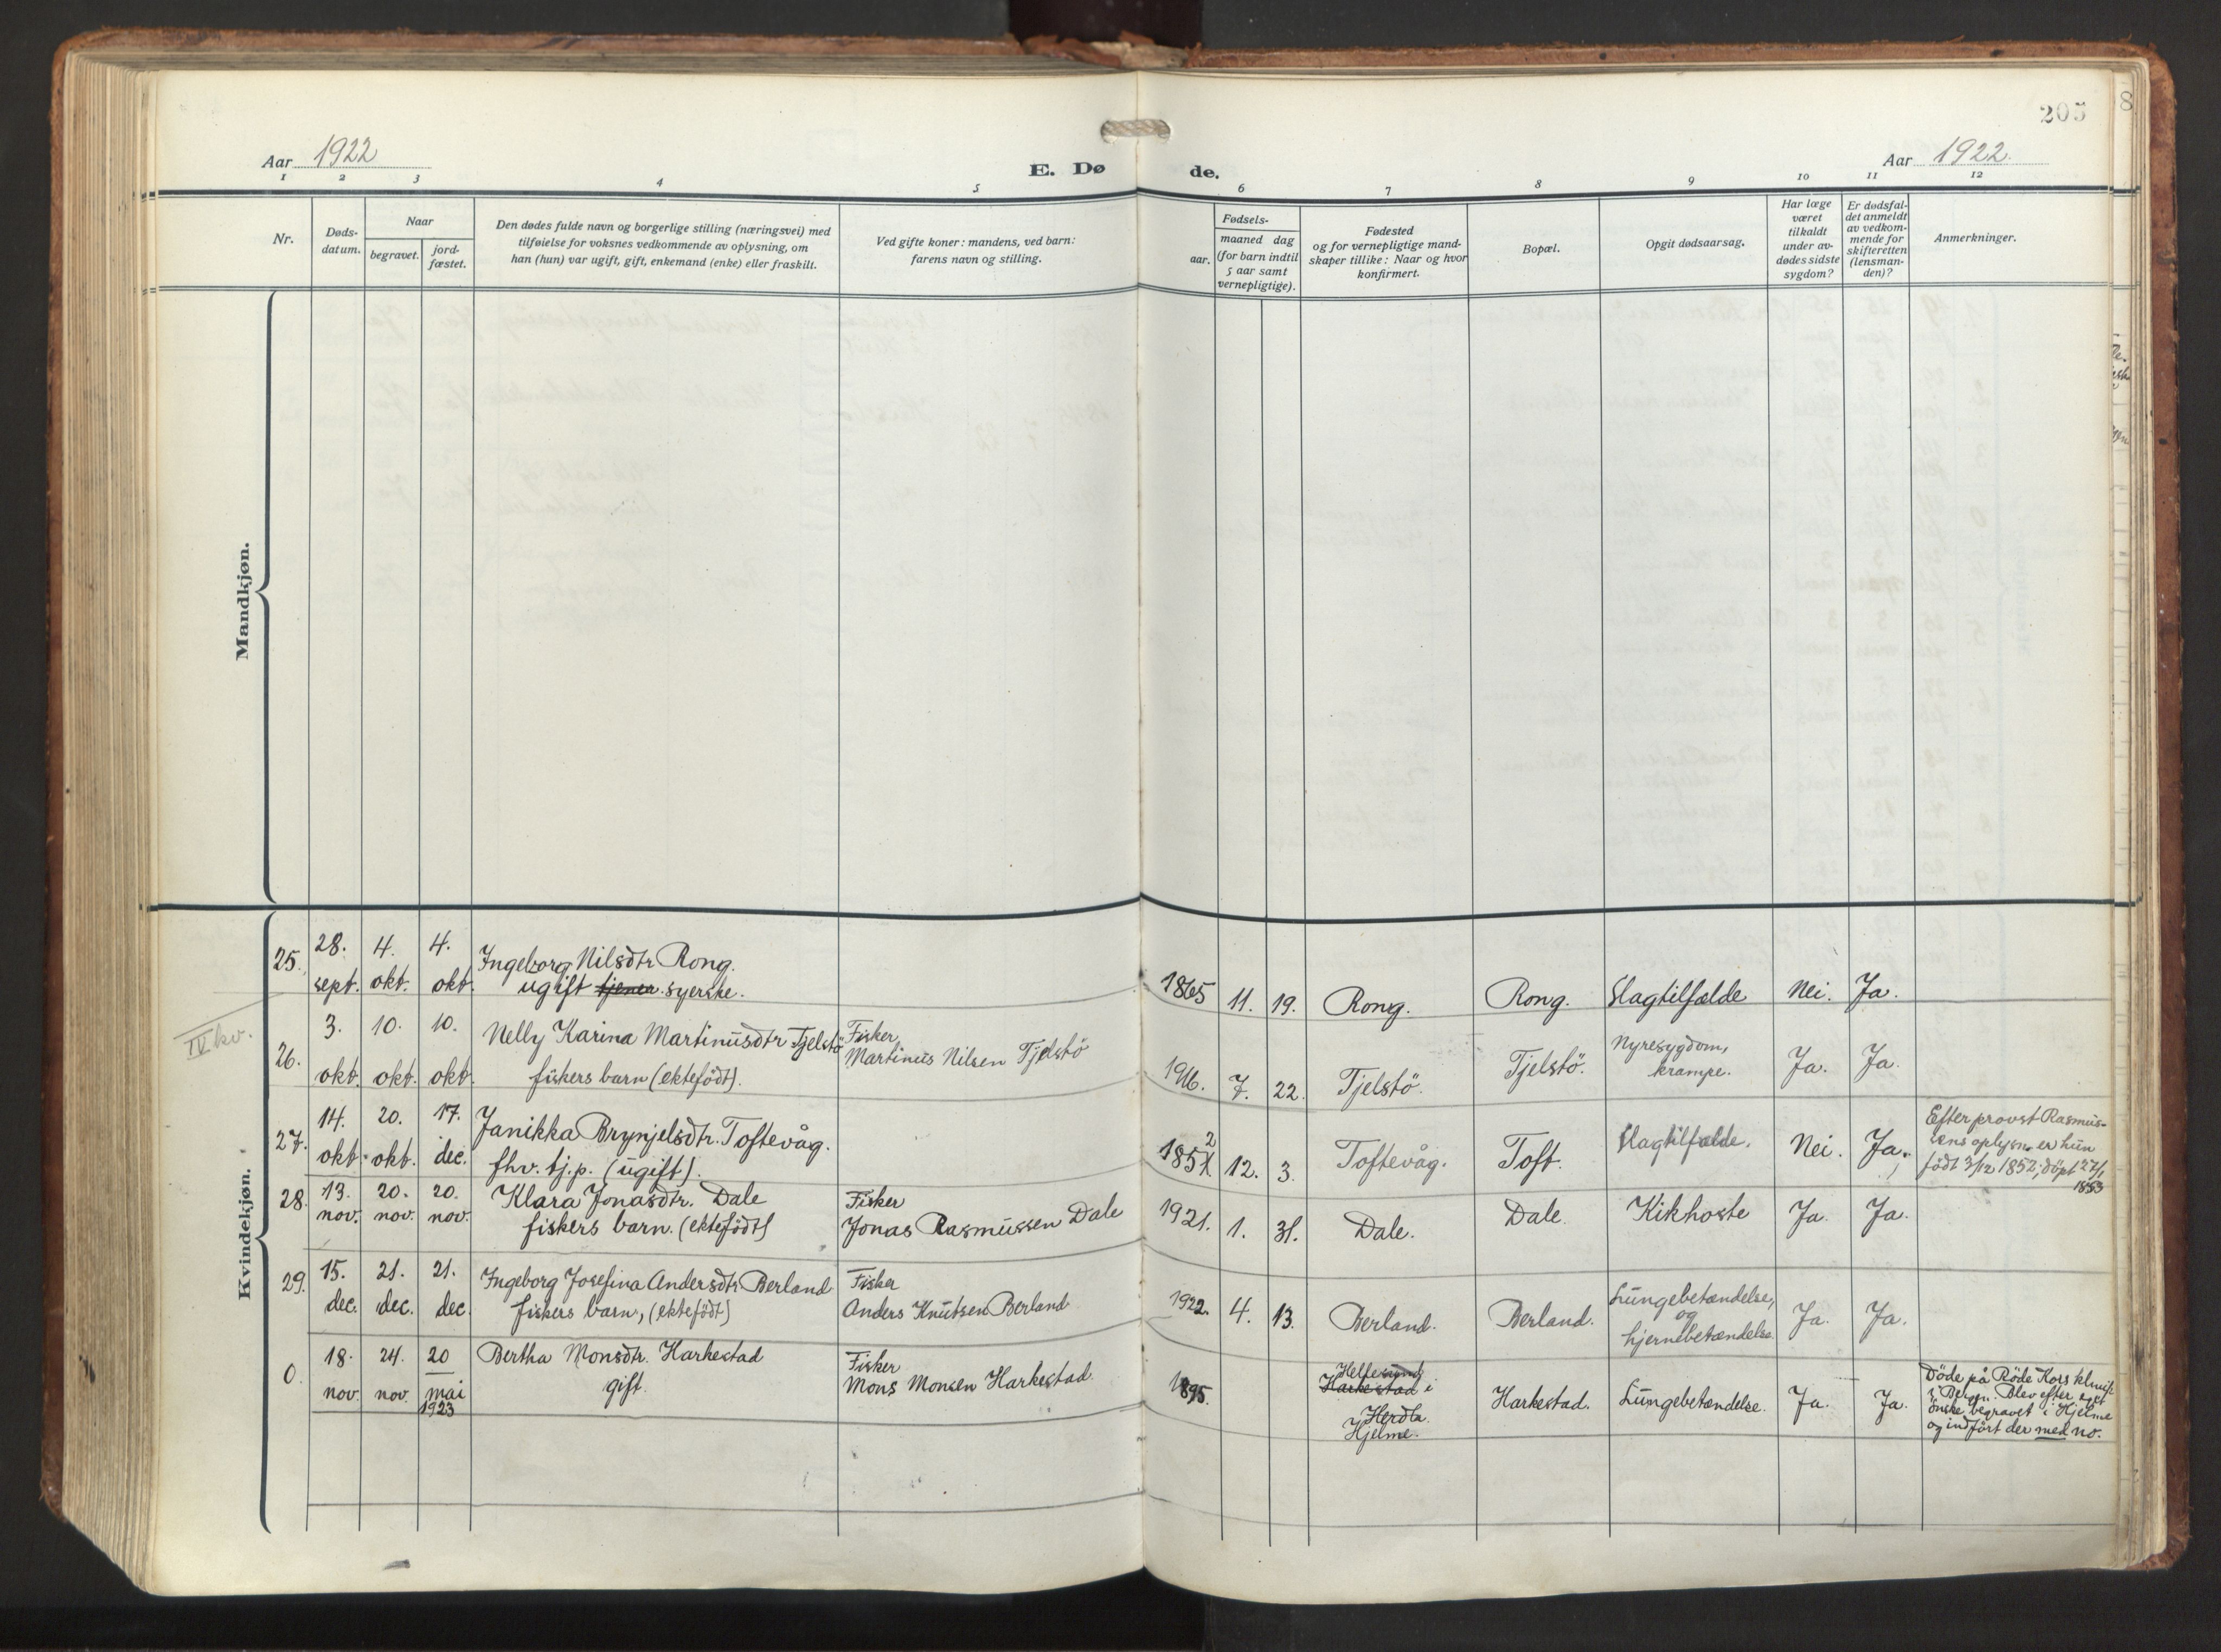 205
8
Aar 1922
E. Dø
de.
Aar 1922.
1 2 3 4 5 6 7 8 9 10 11 12
Nr.
Døds-
datum.
Naar
begravet.
jord-
fæstet.
Den dødes fulde navn og borgerlige stilling (næringsvei) med
tilføielse for voksnes vedkommende av oplysning, om
han (hun) var ugift, gift, enkemand (enke) eller fraskilt.
Ved gifte koner: mandens, ved barn:
farens navn og stilling.
Fødsels-
aar.
maaned dag
(for barn indtil
5 aar samt
vernepligtige).
Fødested
og for vernepligtige mand-
skaper tillike: Naar og hvor
konfirmert.
Bopæl.
Opgit dødsaarsag.
Har læge
været
tilkaldt
under av-
dødes sidste
sygdom?
Er dødsfal-
det anmeldt
av vedkom-
mende for
skifteretten
(lensman-
den)?
Anmerkninger.
Mandkjøn.
Kvindekjøn.
IV kv.
25. 28. sept. 4. okt. 4. okt. Ingeborg Nilsdtr Rong.
ugift tjener syerske.
1865 11. 19. Rong. Rong. Slagtilfælde Nei. Ja.
26. 3. okt. 10. okt. 10. okt. Nelly Karina Martinusdtr Tjelstö
fiskers barn (ektefödt).
Fisker
Martinus Nilsen Tjelstö
1916. 7. 22. Tjelstö. Tjelstö. Nyresygdom,
krampe. Ja. Ja.
27. 14. okt. 20. okt. 17. dec. Janikka Brynjelsdtr. Toftevåg.
fhv. tj.p. (ugift).
1852 12. 3. Toftevåg. Toft. Slagtilfælde. Nei. Ja.
Efter provst Rasmus-
sens oplysn. er hun
födt 3/12 1852; döpt 27/1
1853
28. 13. nov. 20. nov. 20. nov. Klara Jonasdtr. Dale
fiskers barn. (ektefödt)
Fisker
Jonas Rasmussen Dale
1921. 1. 31. Dale. Dale. Kikhoste Ja. Ja.
29. 15. dec. 21. dec. 21. dec. Ingeborg Josefina Andersdtr Berland
fiskers barn, (ektefödt)
Fisker
Anders Knutsen Berland
1922. 4. 13. Berland. Berland. Lungebetændelse,
og
hjernebetændelse Ja. Ja.
0. 18. nov. 24. nov. 20 mai 1923 Bertha Monsdtr. Harkestad
gift.
Fisker
Mons Monsen Harkestad.
1895. Hellesund
Harkestad i
Herdla.
Hjelme.
Harkestad. Lungebetændelse. Ja. Ja.
Döde på Röde Kors klinik
i Bergen. Blev efter eget
önske begravet i Hjelme
og indfört der med no.